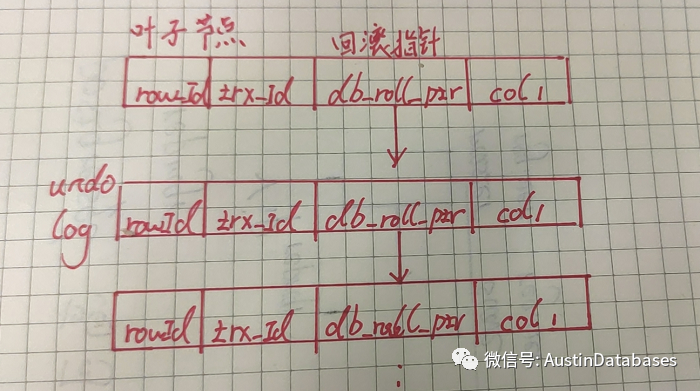 叶子节点 回滚指针
row_Id trx_Id db_roll_ptr col1
undo
log
rowId trx_Id db_roll_ptr col1
rowId trx_Id db_roll_ptr col1
微信号: AustinDatabases